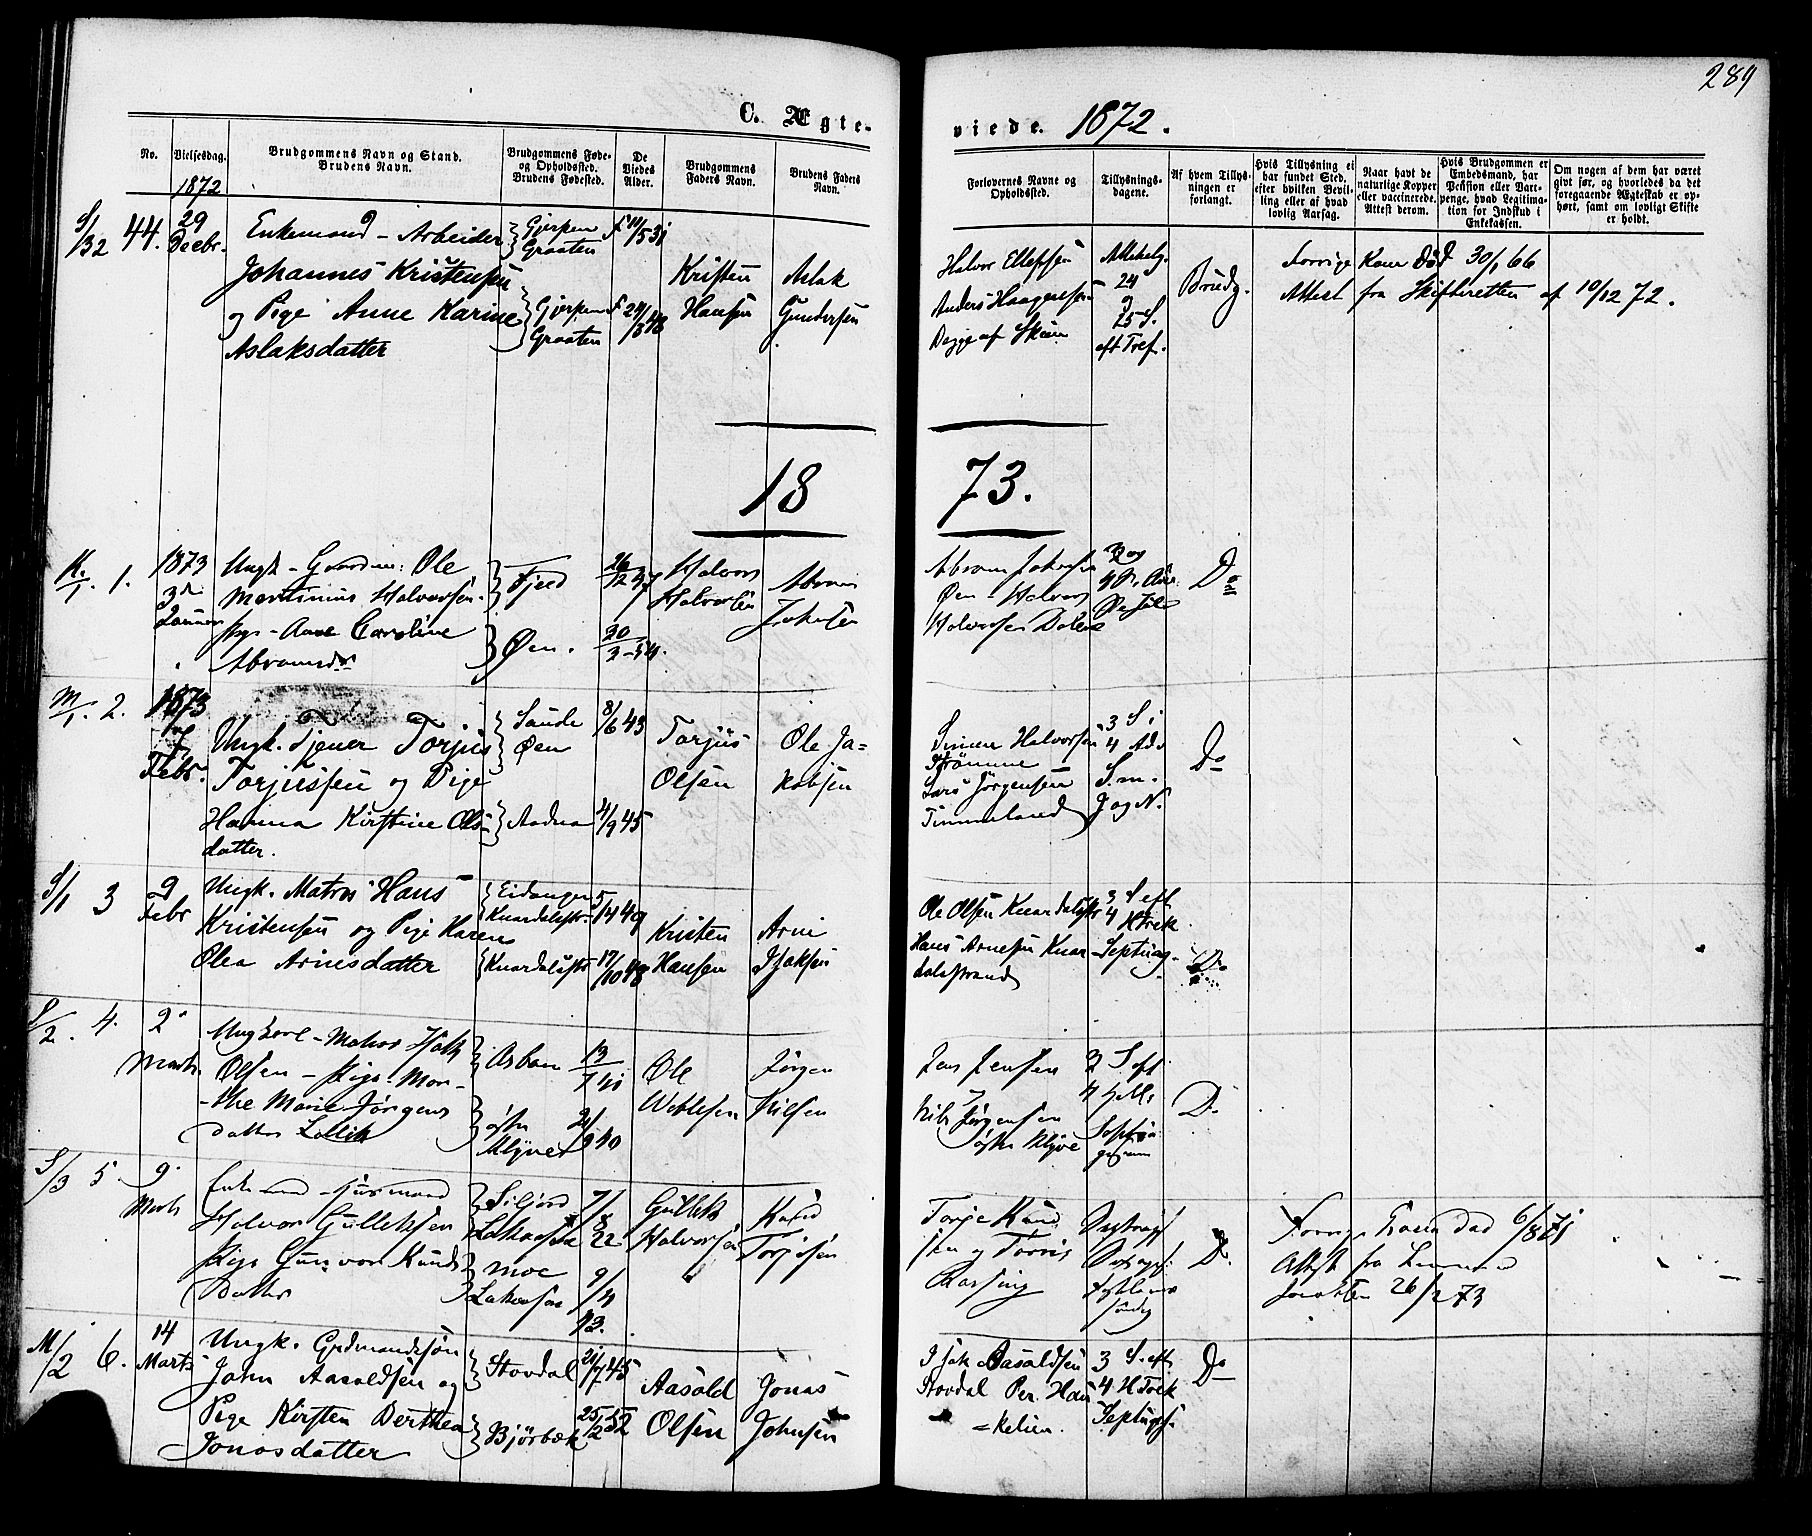 289
C. Ægte-
viede. 1872.
No.
Vielsesdag.
Brudgommens Navn og Stand.
Brudens Navn.
Brudgommens Føde-
og Opholdssted.
Brudens Fødested.
De
Viedes
Alder.
Brudgommens
Faders Navn.
Brudens Faders
Navn.
Forlovernes Navne og
Opholdssted.
Tillysnings-
dagene.
Af hvem Tillys-
ningen er
forlangt.
Hvis Tillysning ei
har fundet Sted,
efter hvilken Bevil-
ling eller af hvad
lovlig Aarsag.
Naar havt de
naturlige Kopper
eller vaccinerede.
Attest derom.
Hvis Brudgommen er
Embedsmand, har
Pension eller Vart-
penge, hvad Legitima-
tion for Indskud i
Enkekassen.
Om nogen af dem har været
givt før, og hvorledes da det
foregaaende Ægteskab er op-
hørt, samt om lovligt Skifte
er holdt.
1872
S/32 44. 29
Decbr.
Enkemand - Arbeider
Johannes Kristensen
og Pige Anne Karine
Aslaksdatter
Gjerpen
Graaten
Gjerpen
Graaten
11/5 31
24/3 48
Kristen
Hansen
Aslak
Gundersen
Halvor Ellefsen
Anders Haagensen
Begge af Skien
24
og
25 S.
eft Tref.
Brudg.
Forrige Kone Død 30/1 66
Attest fra Skifteretten af 10/12 72.
18 73.
K/1. 1. 1873
3de
Januar
Ungk - Gaardm: Ole
Martinius Halvorsen
Pige - Anne Caroline
Abramsdr
Fjed
Øen.
26/12 47
20/3 - 54.
Halvor
Halvorsen
Abram
Jakobsen
Abram Jakobsen
Øen - Halvor
Halvorsen Dalene
3 og
Do
M/1. 2. 1873
7
Febr.
Ungk. Tjener Torjus
Torjussen og Pige
Hanna Kirstine Ols-
datter.
Saude
Øen
8/6 43
4/9 45
Torjus
Olsen
Ole Ja=
kobsen
Simen Halvorsen
Strömme
Lars Jörgensen
Timmeland
3 S. i
4 Adv
S. m.
J og N.
Do
S/1 3 9
Febr
Ungk. Matros Hans
Kristensen og Pige Karen
Olea Arnesdatter
Eidanger
Knardalsstr.
Knardalsstr
5/4 49
17/10 48
Kristen
Hansen
Arne
Isaksen
Ole Olsen Knardalsstr
Hans Arnesen Knar-
dalsstrand
3 S eft
4 H Trek
Septuag-
Do
S/2. 4. 2
Marts.
Ungkarl - Matros Isak
Olsen - Pige - Mar-
-the Marie Jørgens
datter
østre
Klyver
13/7 41
21/9 40
Ole
Jørgen
Nilsen
Jens Jensen
Nils Jørgensen
østre Klyve
3 S eft
Do
S/3 5. 9
Marts
Enkemand - Husmand
Halvor Gulleksen
Pige Gunvor Knuds
Datter
Siljord
moe
7/8 22
9/4 43.
Gullek
Halvorsen
Knud
Torjusen
Torje Knud
sen og Torris
Do
Forrige Kone Død 6/8 71
Attest fra
26/2 73
M/2 6. 14
Marts
Ungk. Grdmandssøn
John Aasoldsen og
Pige Kirsten Berthea
Jonasdatter
Stovdal
Bjørbæk
21/7 45
25/2 52
Aasold
Olsen
Jonas
Johnsen
Isak Aasoldsen
Stovdal Per. Han
=kelien.
3 S. eft
4 H Trek
Septuags.
Do